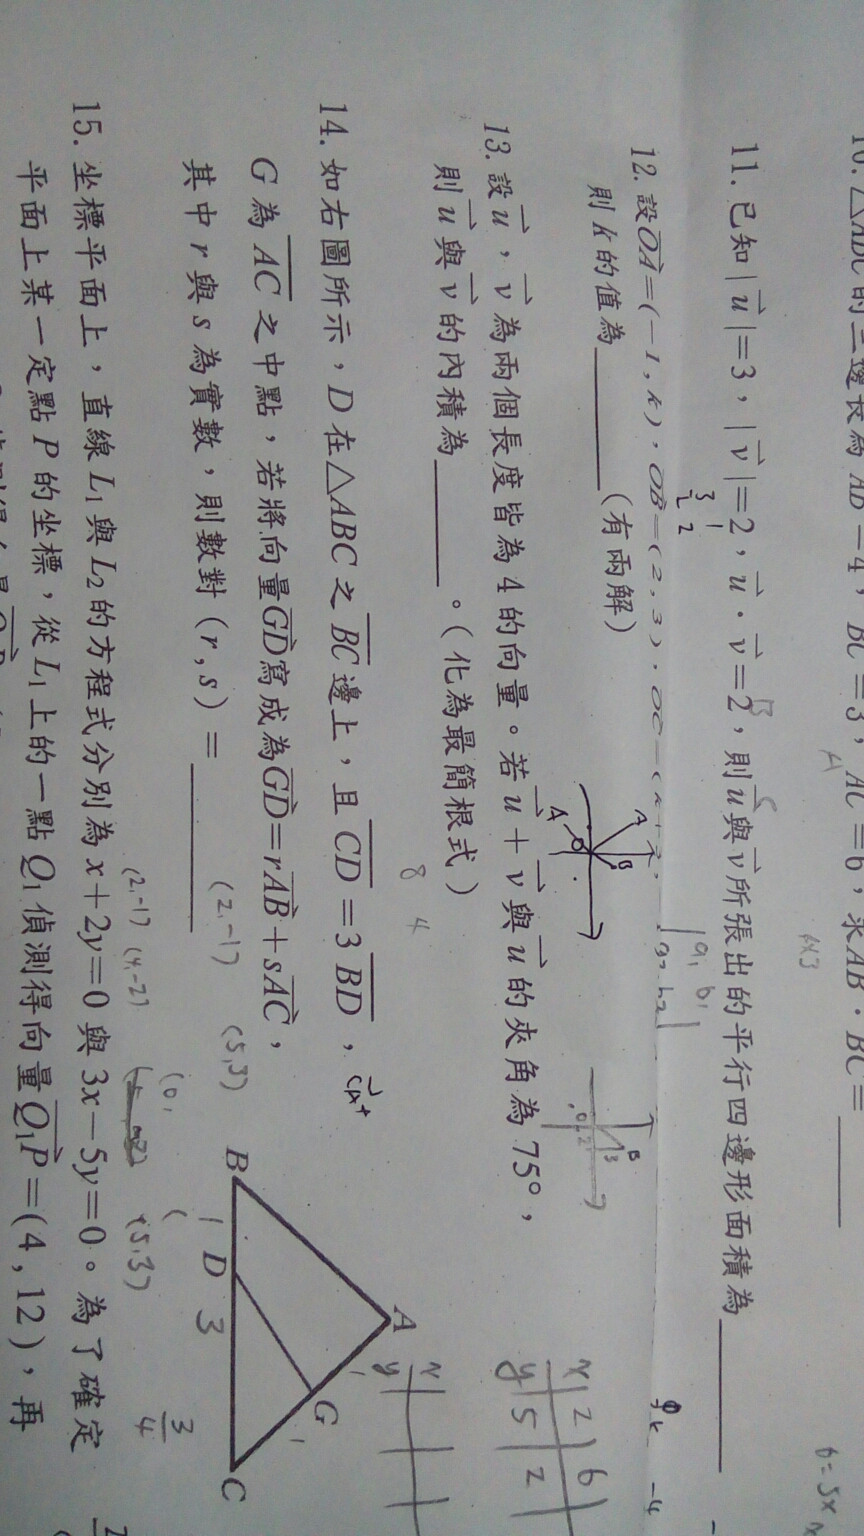 10. △ABC 的三邊長為 AB=4, BC=3, AC=6, 求AB·BC=
11. 已知|u|=3, |v|=2, u·v=2, 則u與v所張出的平行四邊形面積為
12. 設OA=(-1, k), OB=(2, 3), OC=(k+
則 k 的值為 (有兩解)
13. 設u, v為兩個長度皆為 4 的向量。若u+v與u的夾角為 75°,
則u與v的內積為 。(化為最簡根式)
8 4
14. 如右圖所示, D 在△ABC之BC邊上, 且 CD=3BD,
G 為AC之中點, 若將向量GD寫成為GD=rAB+sAC,
其中 r 與 s 為實數, 則數對(r, s)=
(2,-1) (5,3)
A
B D G C
1 3
3/4
x 2 6
y 5 2
x
y
(2,-1) (4,-2) (5,3)
15. 坐標平面上, 直線L₁與L₂的方程式分別為x+2y=0與3x-5y=0。為了確定
平面上某一定點P的坐標, 從L₁上的一點Q₁偵測得向量Q₁P=(4, 12), 再